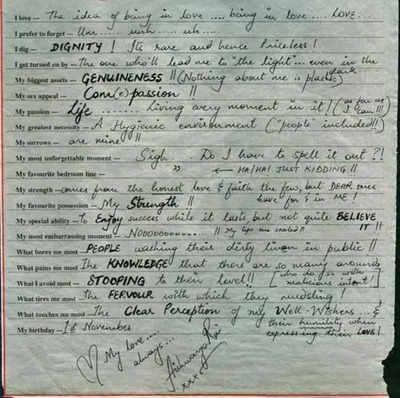 I love — The idea of being in love .... being in love .... LOVE...
I prefer to forget — Um ..... uuh ..... uh....
I dig — DIGNITY! Its rare and hence Priceless!
I get turned on by — The one who'll lead me to "the light"... even in the dark
My biggest assets — GENUINENESS!! (Nothing about me is plastic)
My sex appeal — Com(e)passion!!
My passion — Life ........ Living every moment in it! (as far as I can!!)
My greatest necessity — A Hygienic environment ("people" included!!)
My sorrows — are mine!!
My most unforgettable moment — Sigh... Do I have to spell it out?!
My favourite bedroom line — " ← HA! HA! JUST KIDDING!!
My strength — comes from the honest love & faith the few, but DEAR ones have for & in ME!
My favourite possession — My Strength!!
My special ability — to Enjoy success while it lasts but not quite BELIEVE IT!!
My most embarrassing moment — Nooooooooo....!! My lips are sealed!!
What bores me most — PEOPLE washing their dirty linen in public!!
What pains me most — The KNOWLEDGE that there are so many around who do so with malicious intent!
What I avoid most — STOOPING to their level!!
What tires me most — the FERVOUR with which they mudsling!
What touches me most — The Clear Perception of my Well-Wishers ... & their humility when expressing their LOVE!
My birthday — 1st November
My love....
always...
xxx